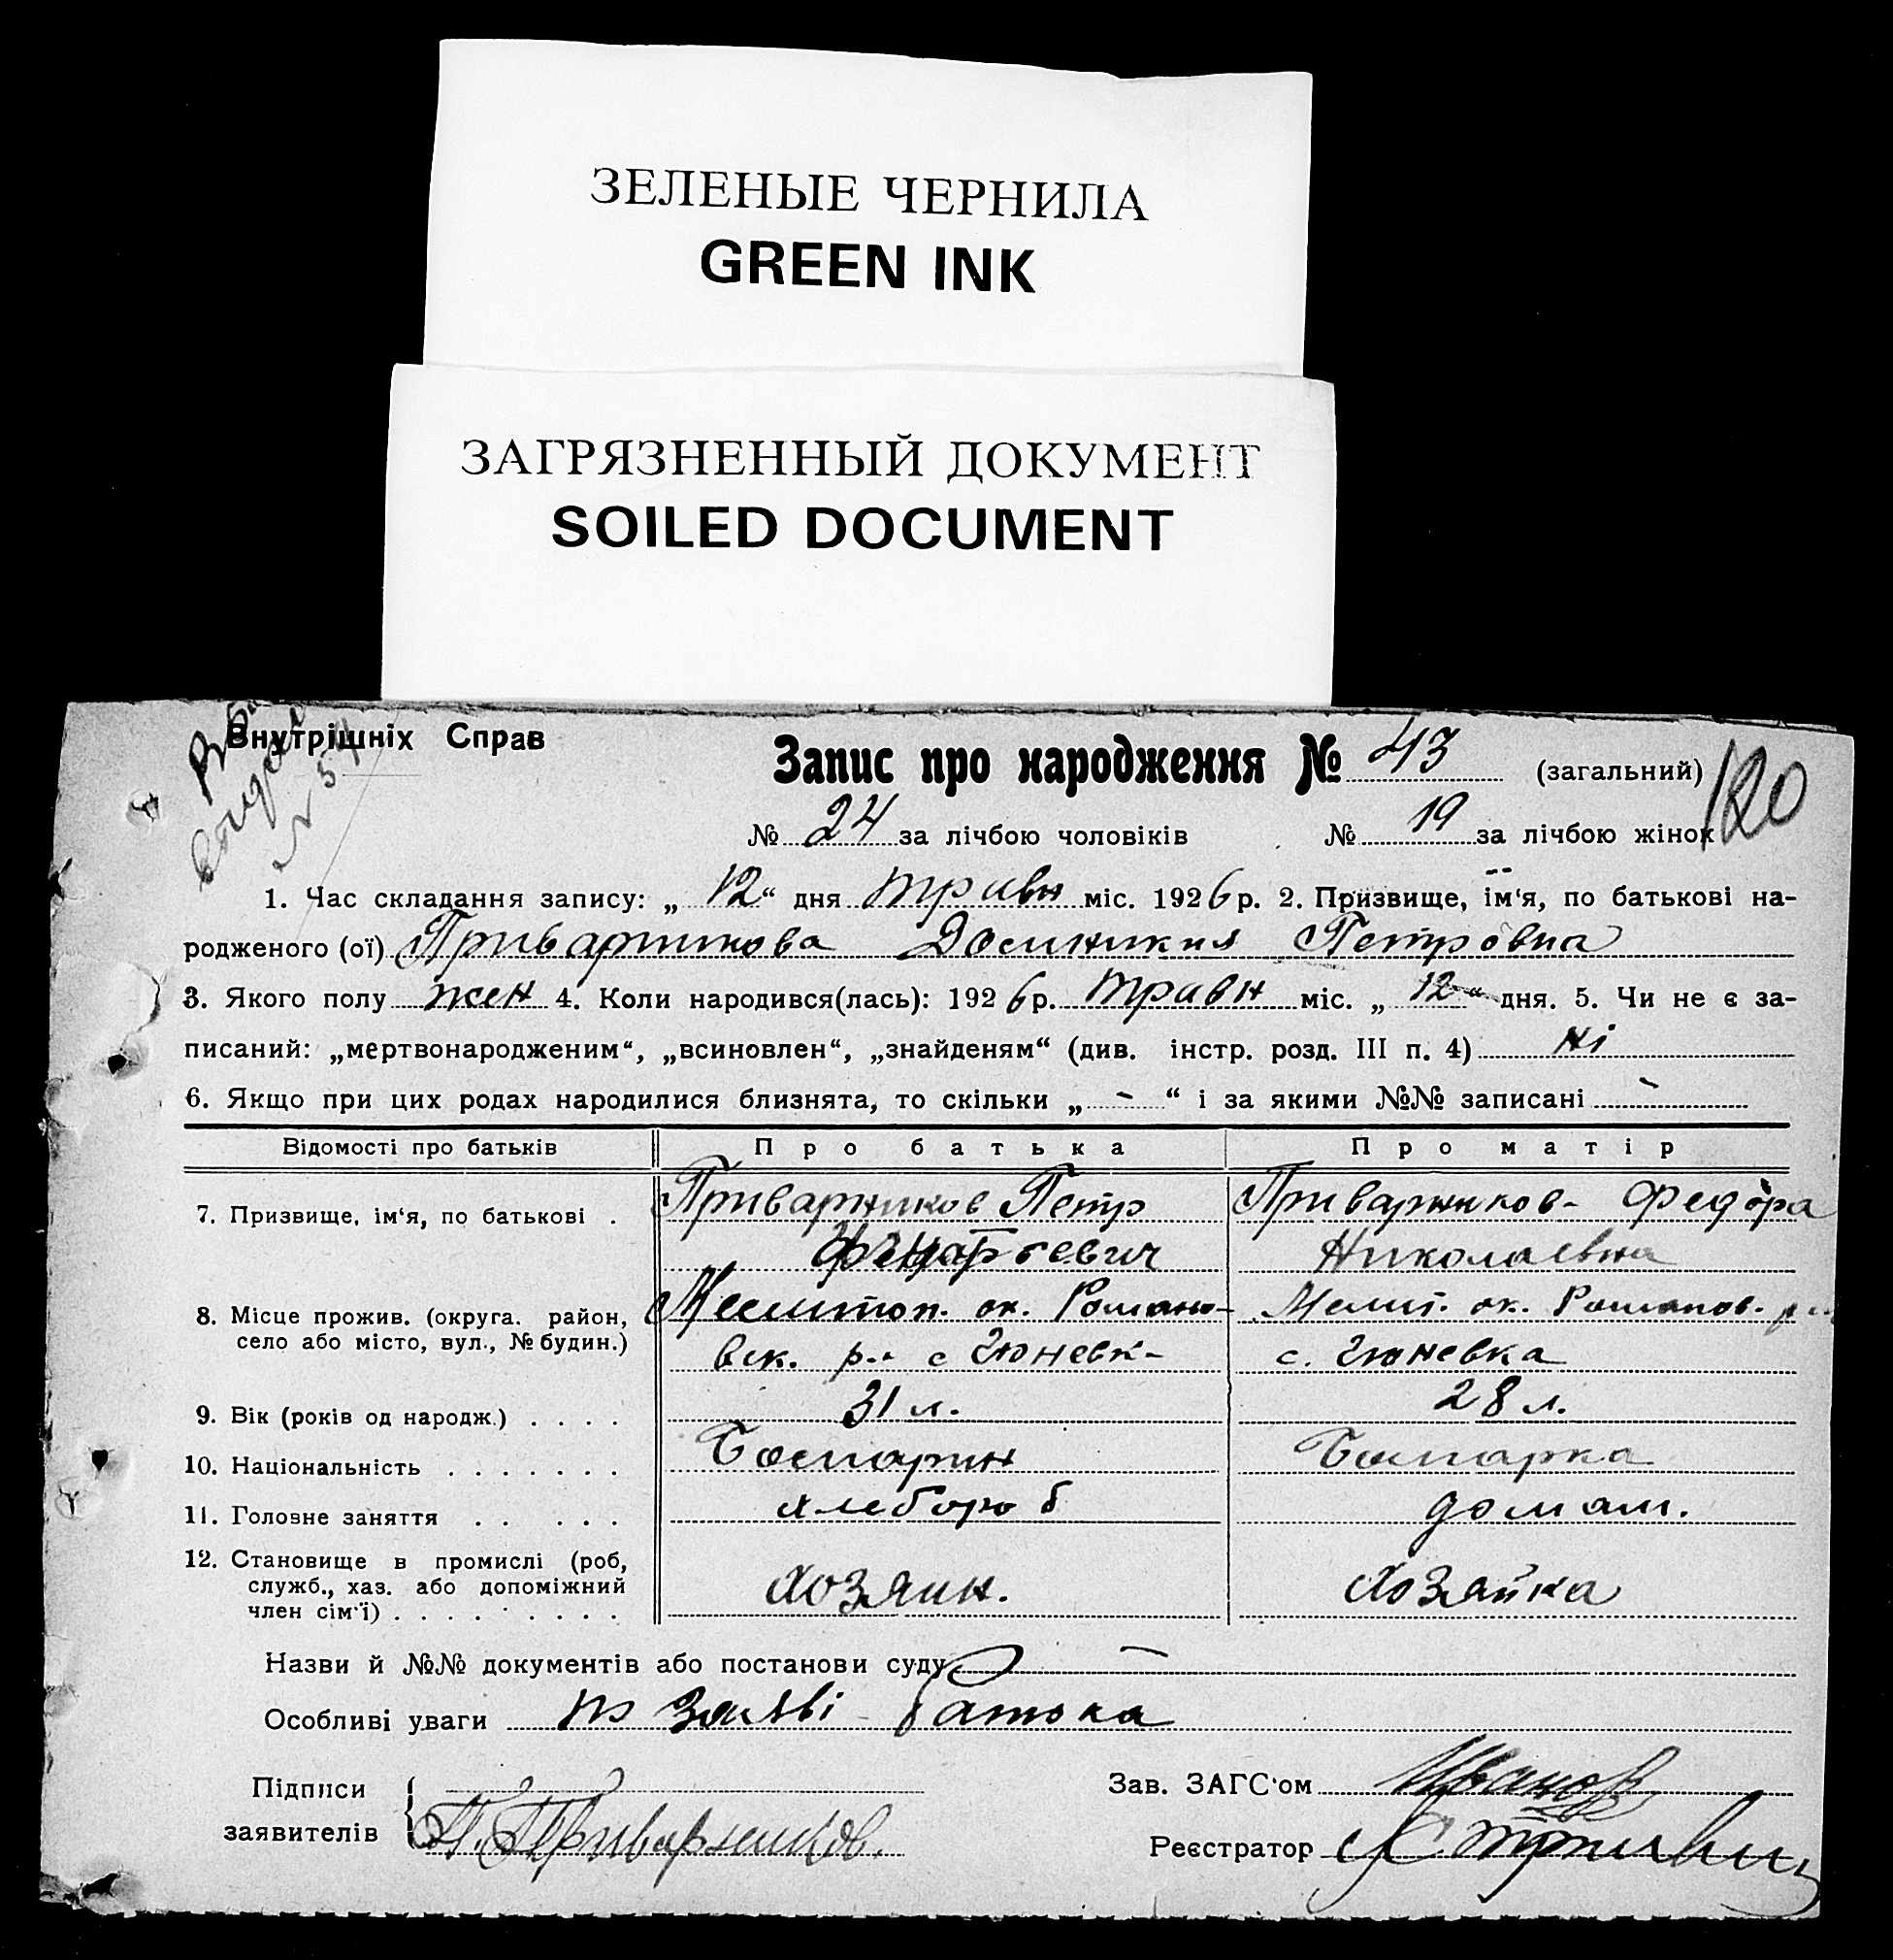 ЗЕЛЕНЫЕ ЧЕРНИЛА
GREEN INK
ЗАГРЯЗНЕННЫЙ ДОКУМЕНТ
SOILED DOCUMENT
Внутрішніх Справ
Запис про народження № 43 (загальний) 120
№ 24 за лічбою чоловіків № 19 за лічбою жінок
1. Час складання запису: „12“ дня травн міс. 1926 р. 2. Призвище, ім‘я, по батькові на-
родженого (ої) Приварникова Доминикия Петровна
3. Якого полу жен 4. Коли народився(лась): 1926 р. травн міс. „12“ дня. 5. Чи не є за-
писаний: „мертвонародженим“, „всиновлен“, „знайденям“ (див. інстр. розд. III п. 4) ні
6. Якщо при цих родах народилися близнята, то скільки „ - “ і за якими №№ записані -
Відомості про батьків Про батька Про матір
7. Призвище, ім‘я, по батькові . Приварников Петр Приварников- Федора
Николаевна
8. Місце прожив. (округа. район, Мелитоп. ок. Романо- Мелит. ок. Романов.
село або місто, вул., № будин.) вск. р-н с Гюневк- с. Гюневка
9. Вік (років од народж.) . . . . 31 л. 28 л.
10. Національність . . . . . . . Болгарин Болгарка
11. Головне заняття . . . . . хлебороб домаш.
12. Становище в промислі (роб,
служб., хаз. або допоміжний хозяин. хозяйка
член сім‘ї) . . . . . . . . .
Назви й №№ документів або постанови суду
Особливі уваги по заяві батька
Підписи Зав. ЗАГС‘ом Иванов
заявителів П. Приварников.
Реєстратор